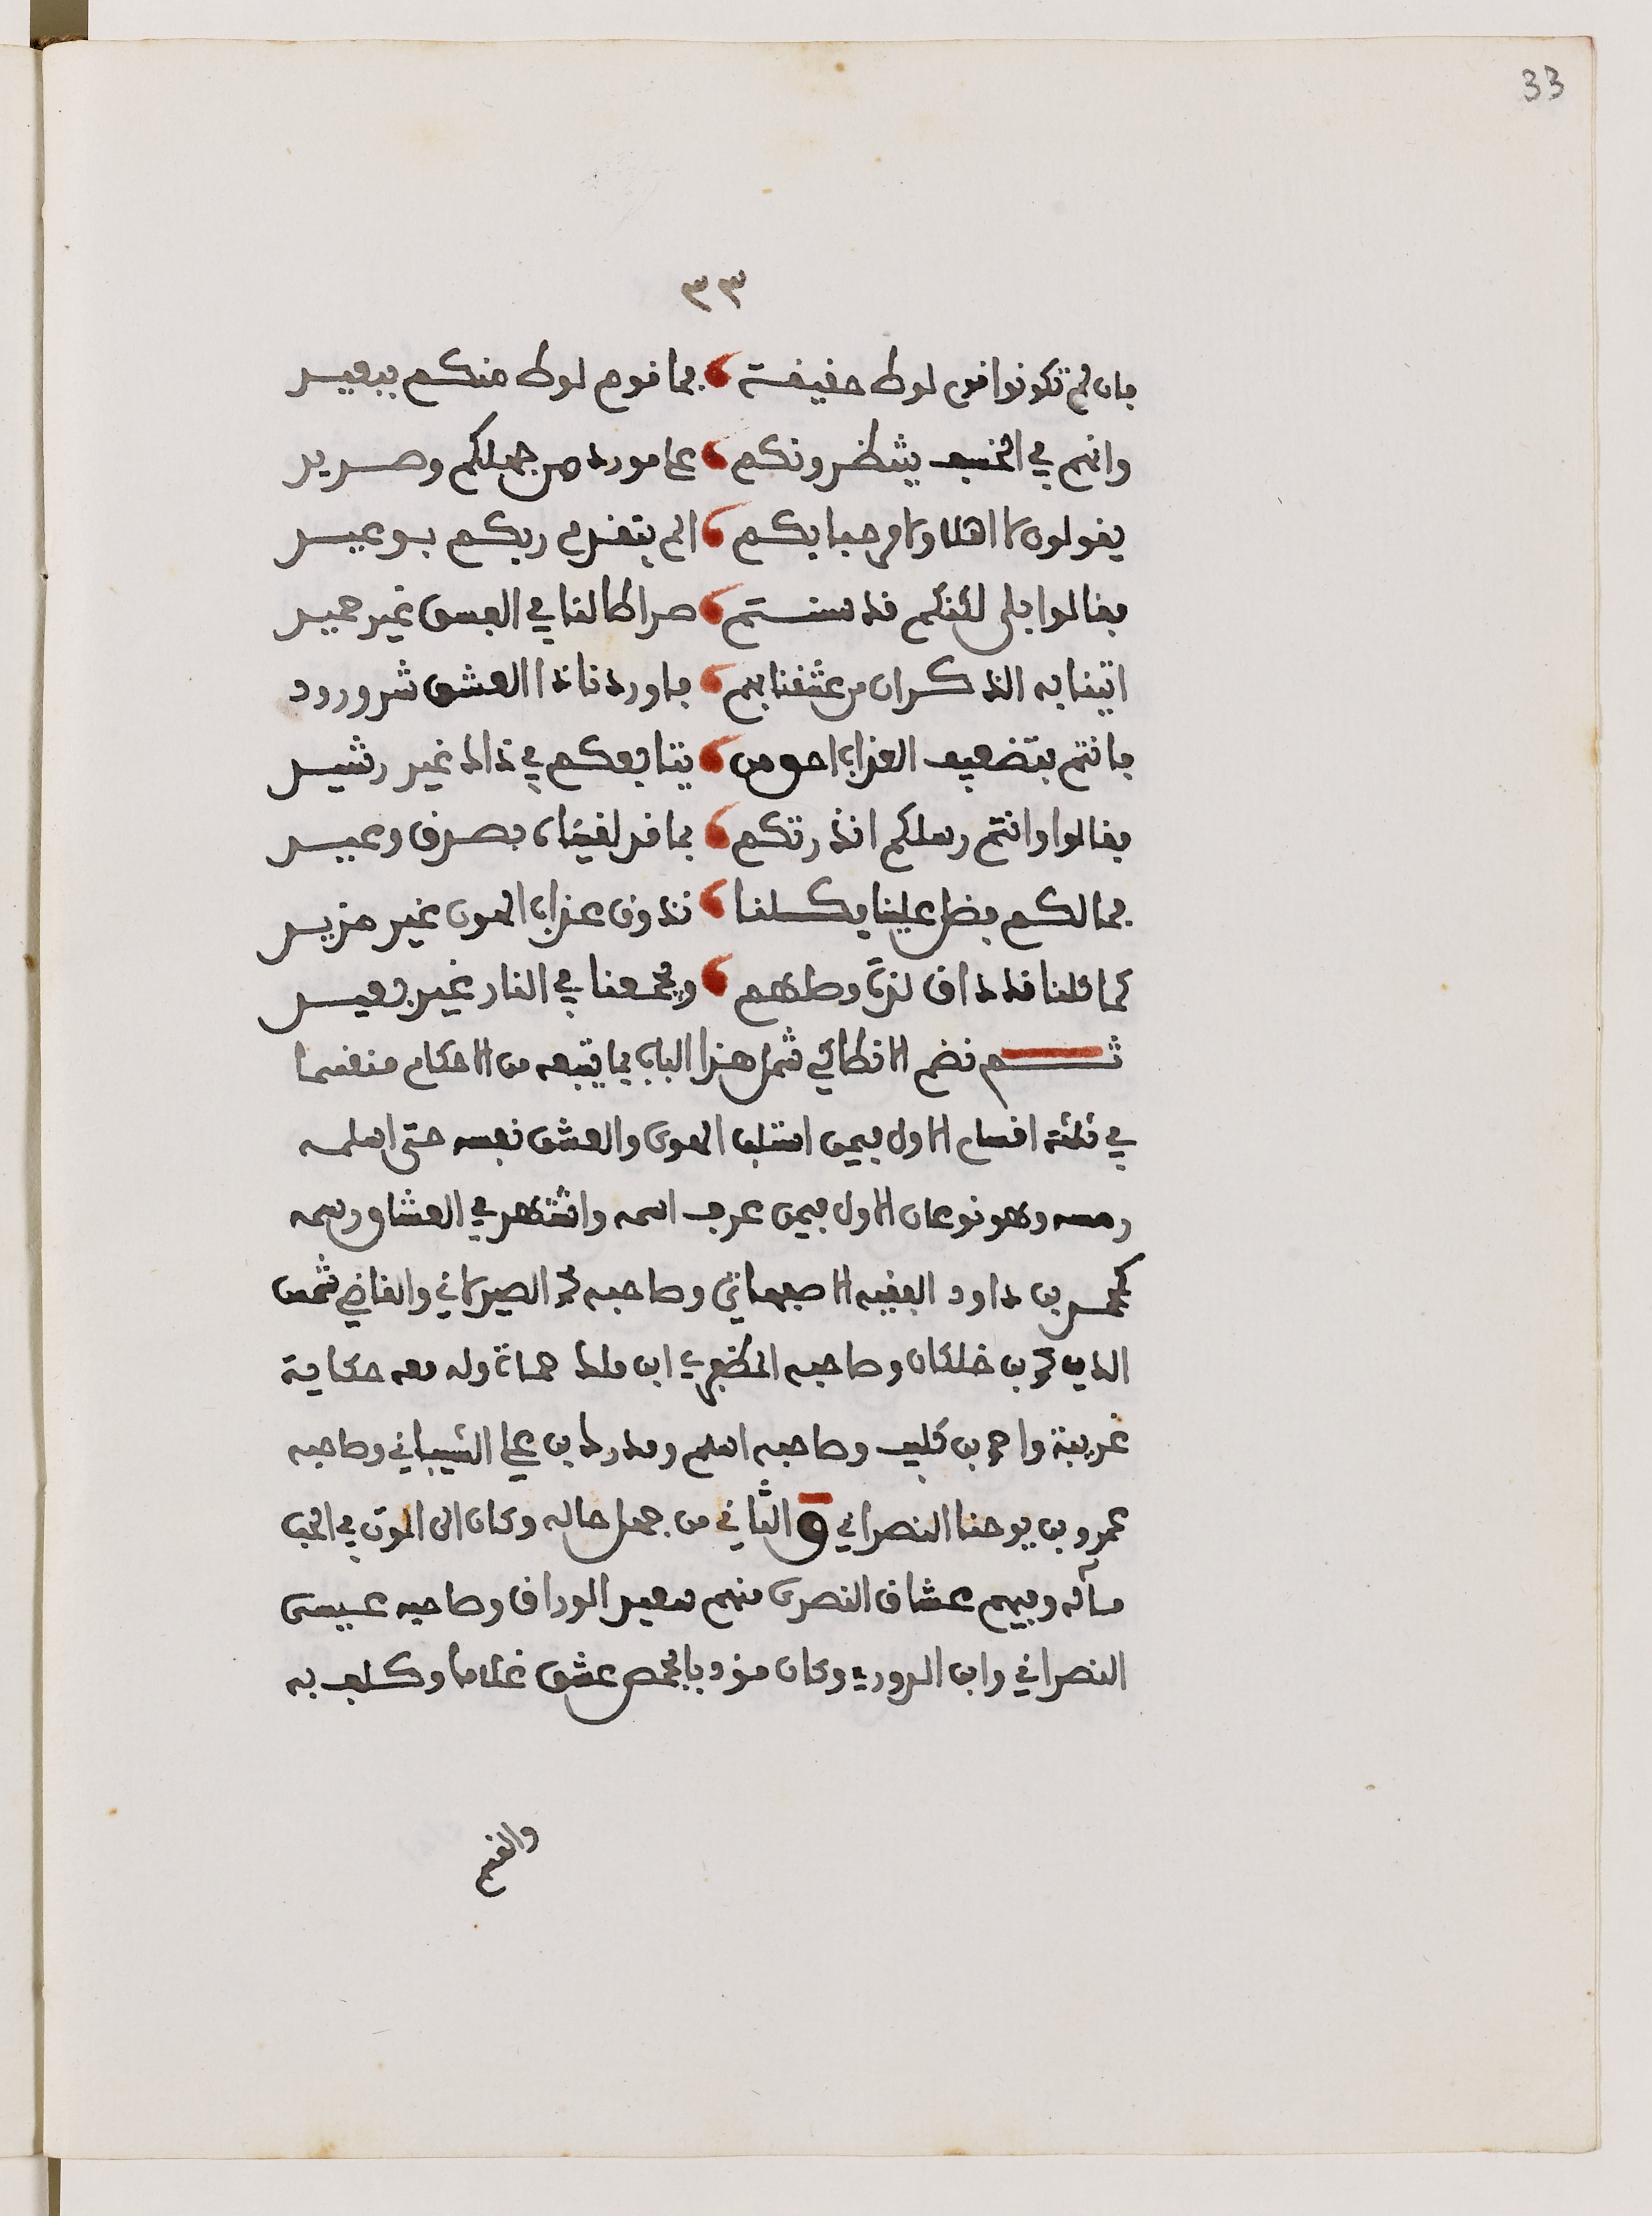 33
٣٣
فان لم تكونوا قوم لوط حقيقة ، فما قوم لوط منكم ببعيد
وانهم في الخسف ينتظرونكم ، على مورد من جهلكم وصديد
يقولون لا اهلا ولا مرحبا بكم ، الم يتقدم ربكم بوعيد
فقالوا بلى لكنكم قد سننتم ، صراطا لنا في الفسق غير حميد
اتينا به الذكران من عشقنا لهم ، فاوردنا ذا العشق شر ورود
فانتم بتضعيف العذاب احق من ، يتابعكم في ذاك غير رشيد
فقالوا وانتم رسلكم انذرتكم ، بما قد لقيناه بصدق وعيد
فما لكم فضل علينا فكلنا ، نذوق عذاب الهون غير مزيد
كما كلنا قد ذاق لذة وصلهم ، ويجمعنا في النار غير بعيد
ثم نضم الانطاكي شمل هذا الباب بما يتبعه من الاحكام منقسما
في ثلثة اقسام الاول فيمن استلب الهوى والعشق نفسه حتى اسلمه
رمسه وهو نوعان الاول فيمن عرف اسمه واشتهر في العشاق رسمه
كمحمد بن داود الفقيه الاصبهاني وصاحبه محمد الصيدلاني والقاضي شمس
الدين محمد بن خلكان وصاحبه المظفري ابن ملك حماة وله معه حكاية
غريبة واحمد بن كليب وصاحبه اسلم ومدرك بن علي الشيباني وصاحبه
عمرو بن يوحنا النصراني و الثاني من جهل حاله وكان الى الموت في الحب
مآله وفيهم عشاق النصرى منهم سعيد الوراق وصاحبه عيسى
النصراني وابن الدوري وكان مؤدبا بحمص عشق غلاما وكلف به
والفتح